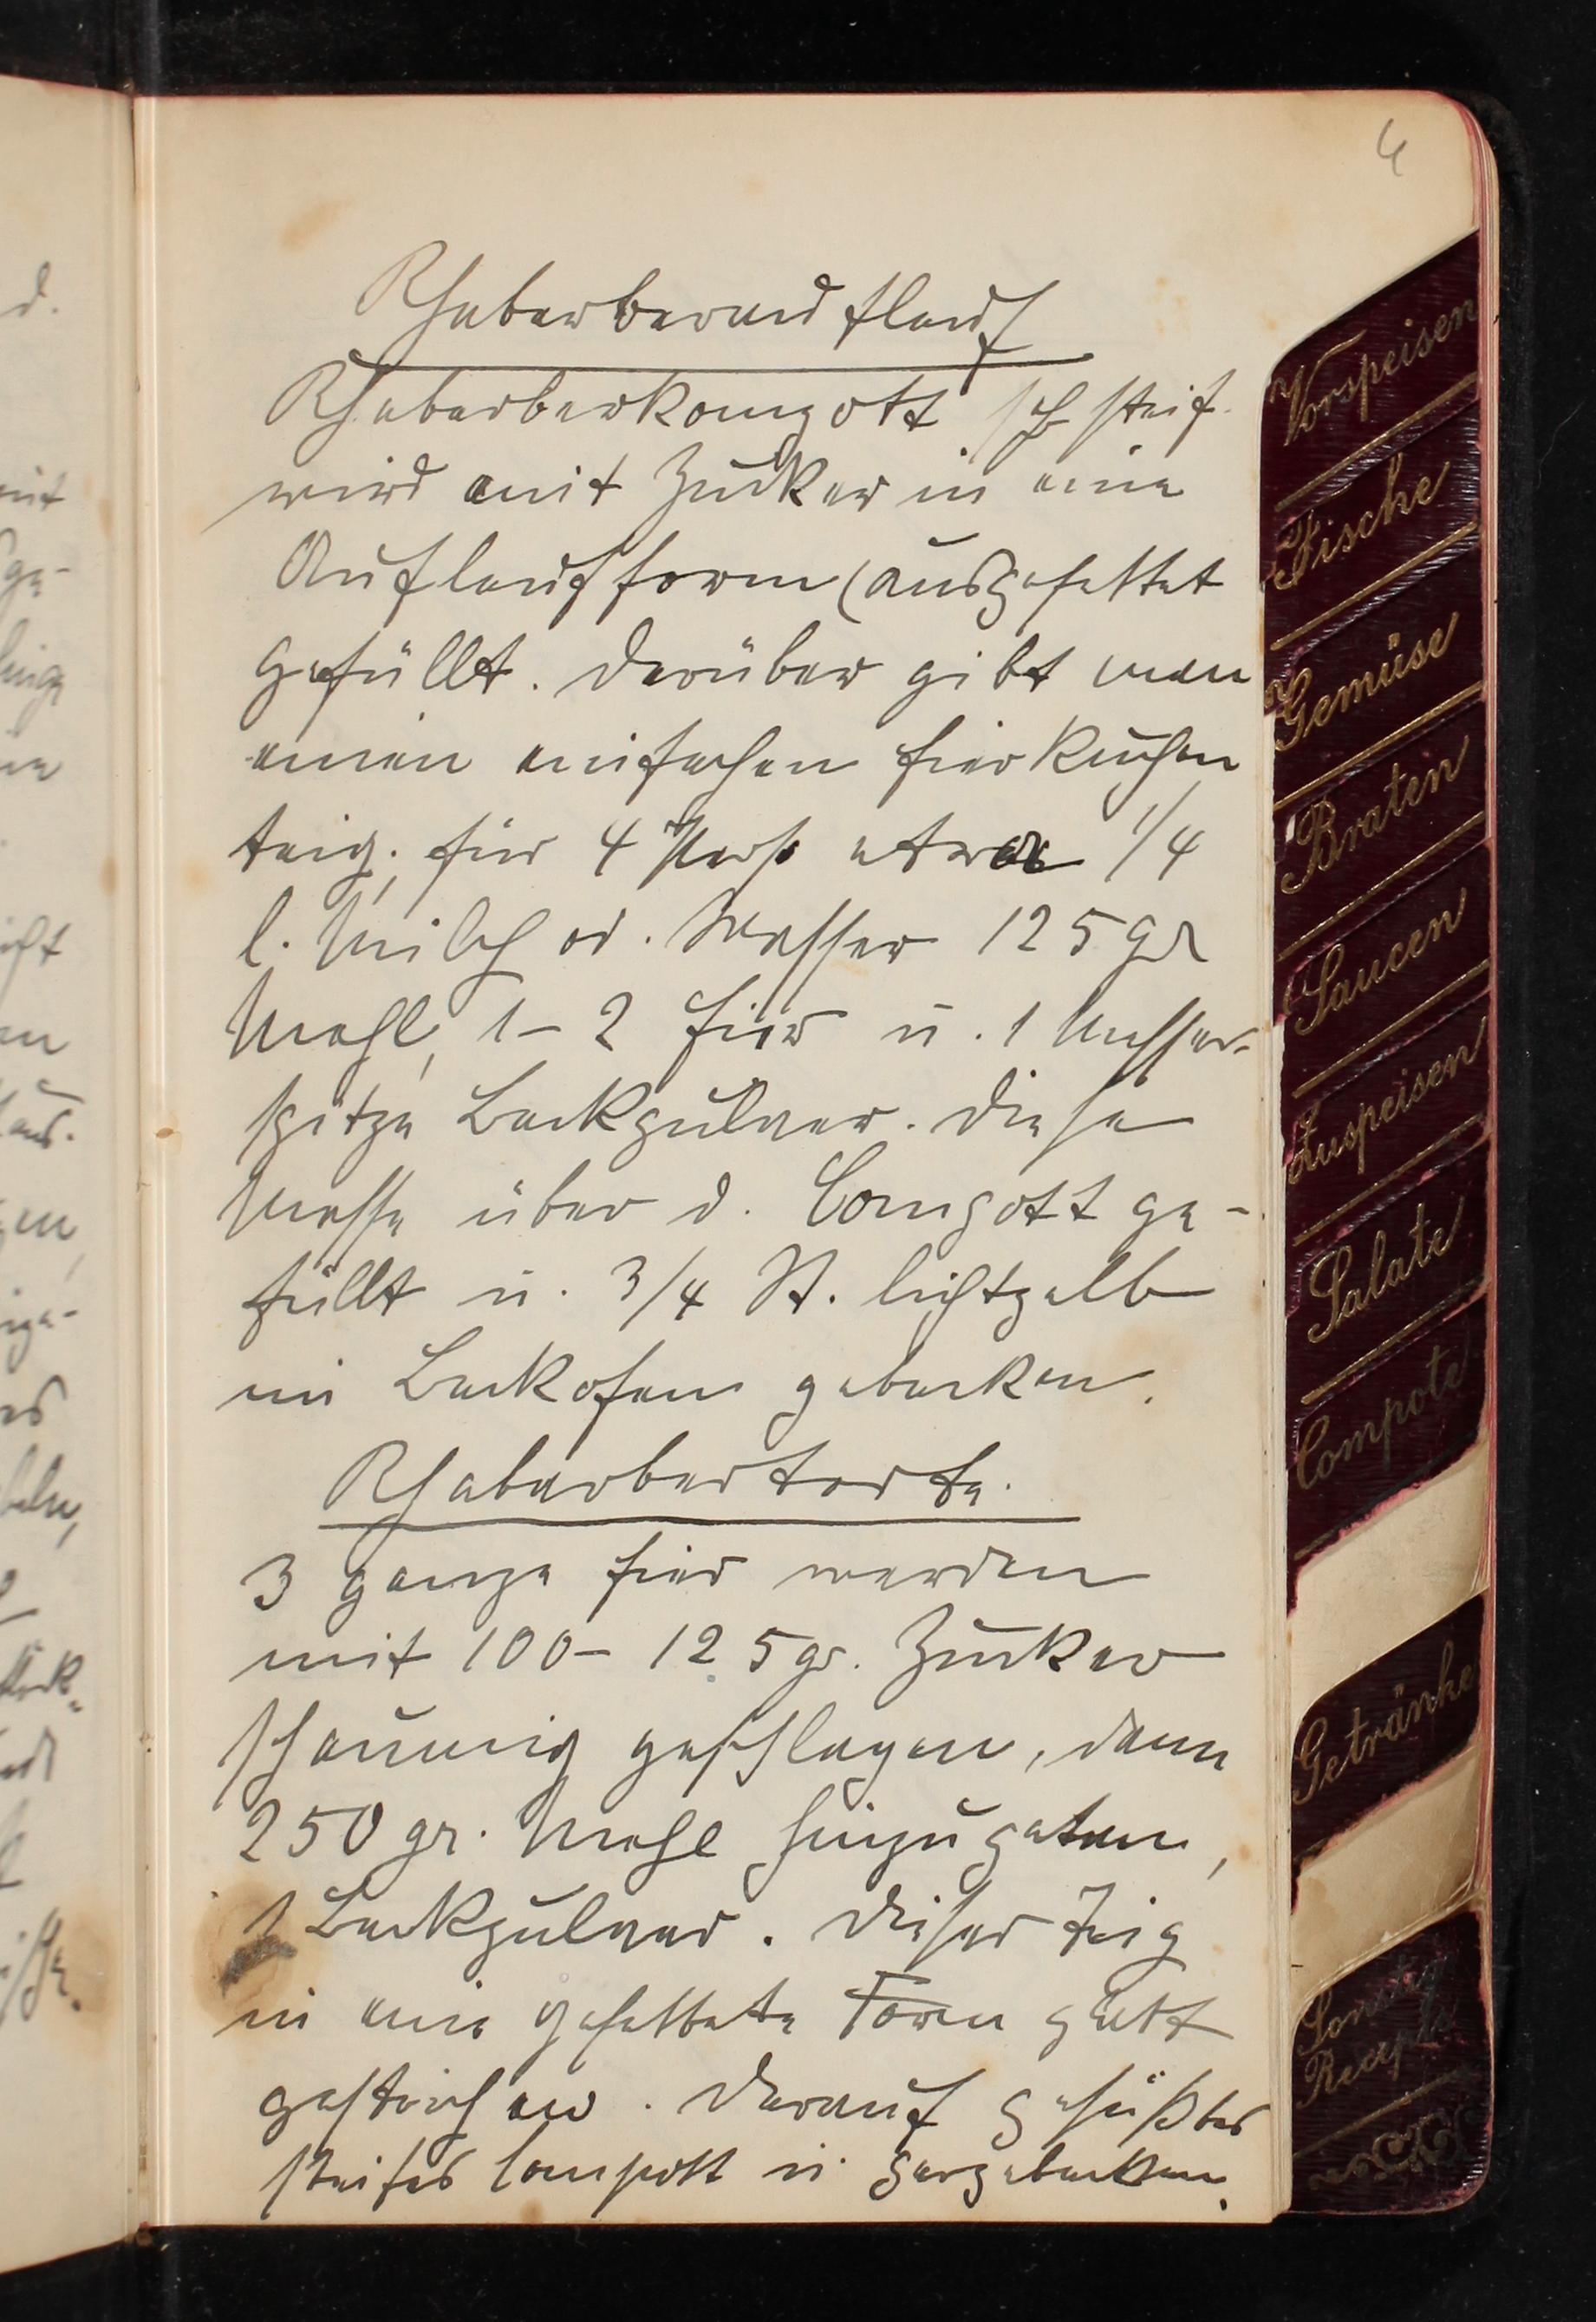 4
Rhabarberauflauf
Rhabarberkompott steif
wird mit Zucker in eine
Auflaufform (ausgefettet
gefüllt. Darüber gibt man
einen einfachen Eierkuchen
teig; für 4 Pers etwa 1/4
l. Milch od. Wasser 125 gr
Mehl, 1-2 Eier u. 1 Messer-
spitze Backpulver. Diese
Masse über d. Compott ge-
füllt u. 3/4 St. lichtgelb
im Backofen gebacken.
Rhabarbertorte.
3 ganze Eier werden
mit 100-125 gr. Zucker
schaumig geschlagen, dann
250 gr. Mehl hinzugetan,
1 Backpulver. Dieser Teig
in eine gefettete Form glatt
gestrichen. Darauf gesüßtes
steifes Compott u. gargebacken.
Vorspeisen
Fische
Gemüse
Braten
Saucen
Zuspeisen
Salate
Compote
Getränke
Sonstige
Recepte